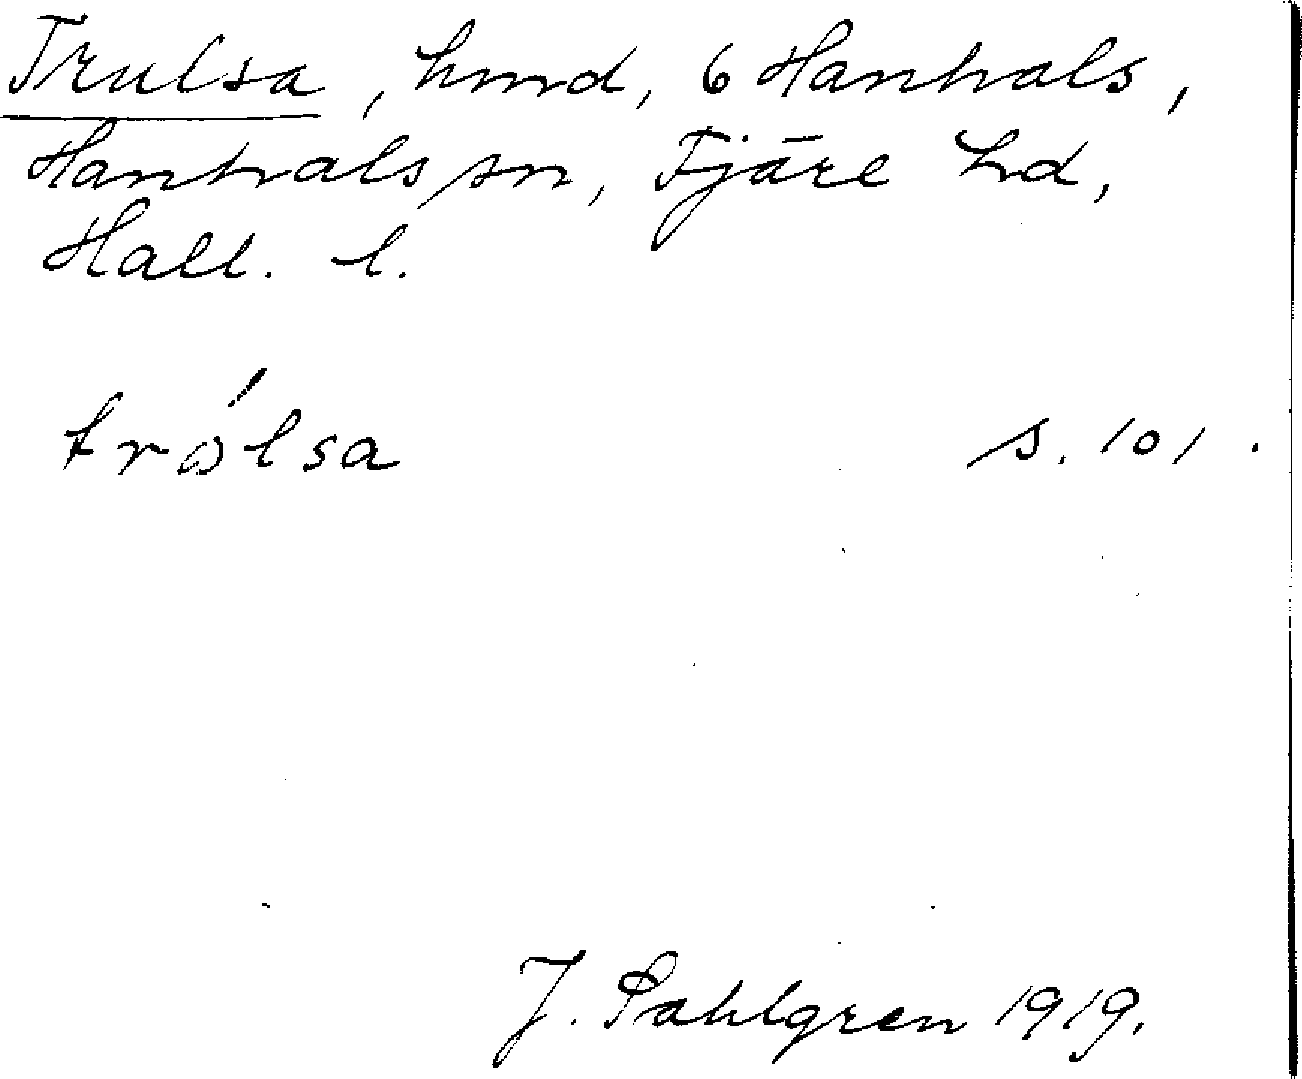 Trulsa, hmd, 6 Hanhals,
Hanhals sn, Fjäre hd,
Hall. l.
trǿlsa s. 101.
J. Sahlgren 1919.